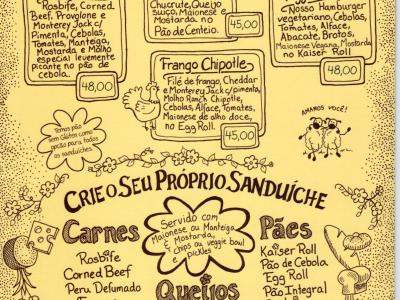 Rosbife, Corned
Beef, Provolone e
Monterey Jack c/
Pimenta, Cebolas,
Tomates, Manteiga,
Mostarda e Molho
especial levemente
picante no pão de
cebola.
48,00
Chucrute, Queijo
Suíço, Maionese e
Mostarda no
Pão de Centeio.
45,00
Nosso Hamburger
vegetariano, Cebolas,
Tomates, Alface,
Abacate, Brotos,
Maionese Vegana, Mostarda
no Kaiser Roll
48,00
Frango Chipotle
Filé de frango, Cheddar
e Monterey Jack c/pimenta,
Molho Ranch Chipotle,
Cebolas, Alface, Tomates,
Maionese de alho doce,
no Egg Roll.
45,00
Temos pão
Sem Glúten como
opção para todos
os sanduíches
AMAMOS VOCÊ!
CRIE O SEU PRÓPRIO SANDUÍCHE
Carnes
Rosbife
Corned Beef
Peru Defumado
Servido com
Maionese ou Manteiga
e Mostarda,
chips ou veggie bowl
e pickles
Queijos
Pães
Kaiser Roll
Pão de Cebola
Egg Roll
Pão Integral